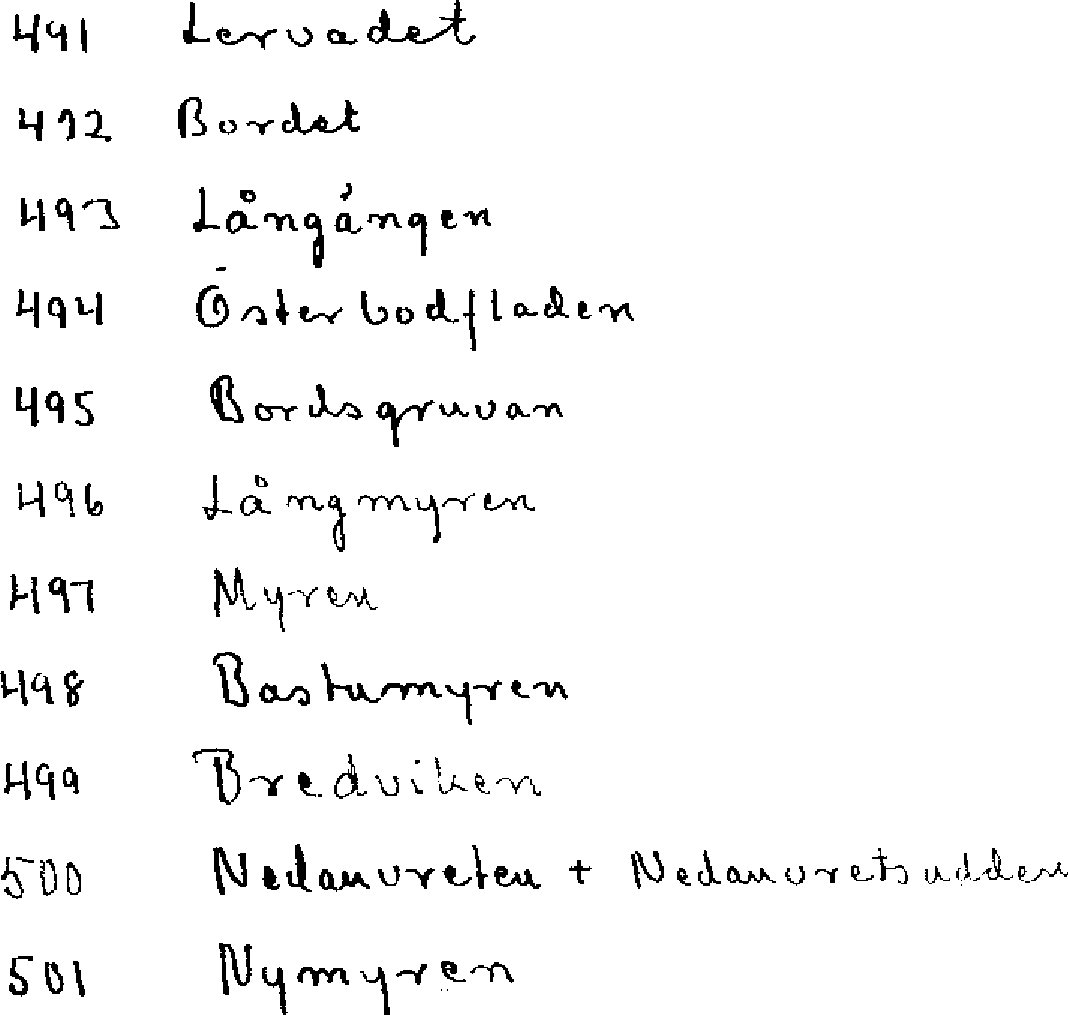 491 Lervadet
492 Bordet
493 Långången
494 Österbodfladen
495 Bordsgruvan
496 Långmyren
497 Myren
498 Bastumyren
499 Bredviken
500 Nedanvreten + Nedanvretsudden
501 Nymyren